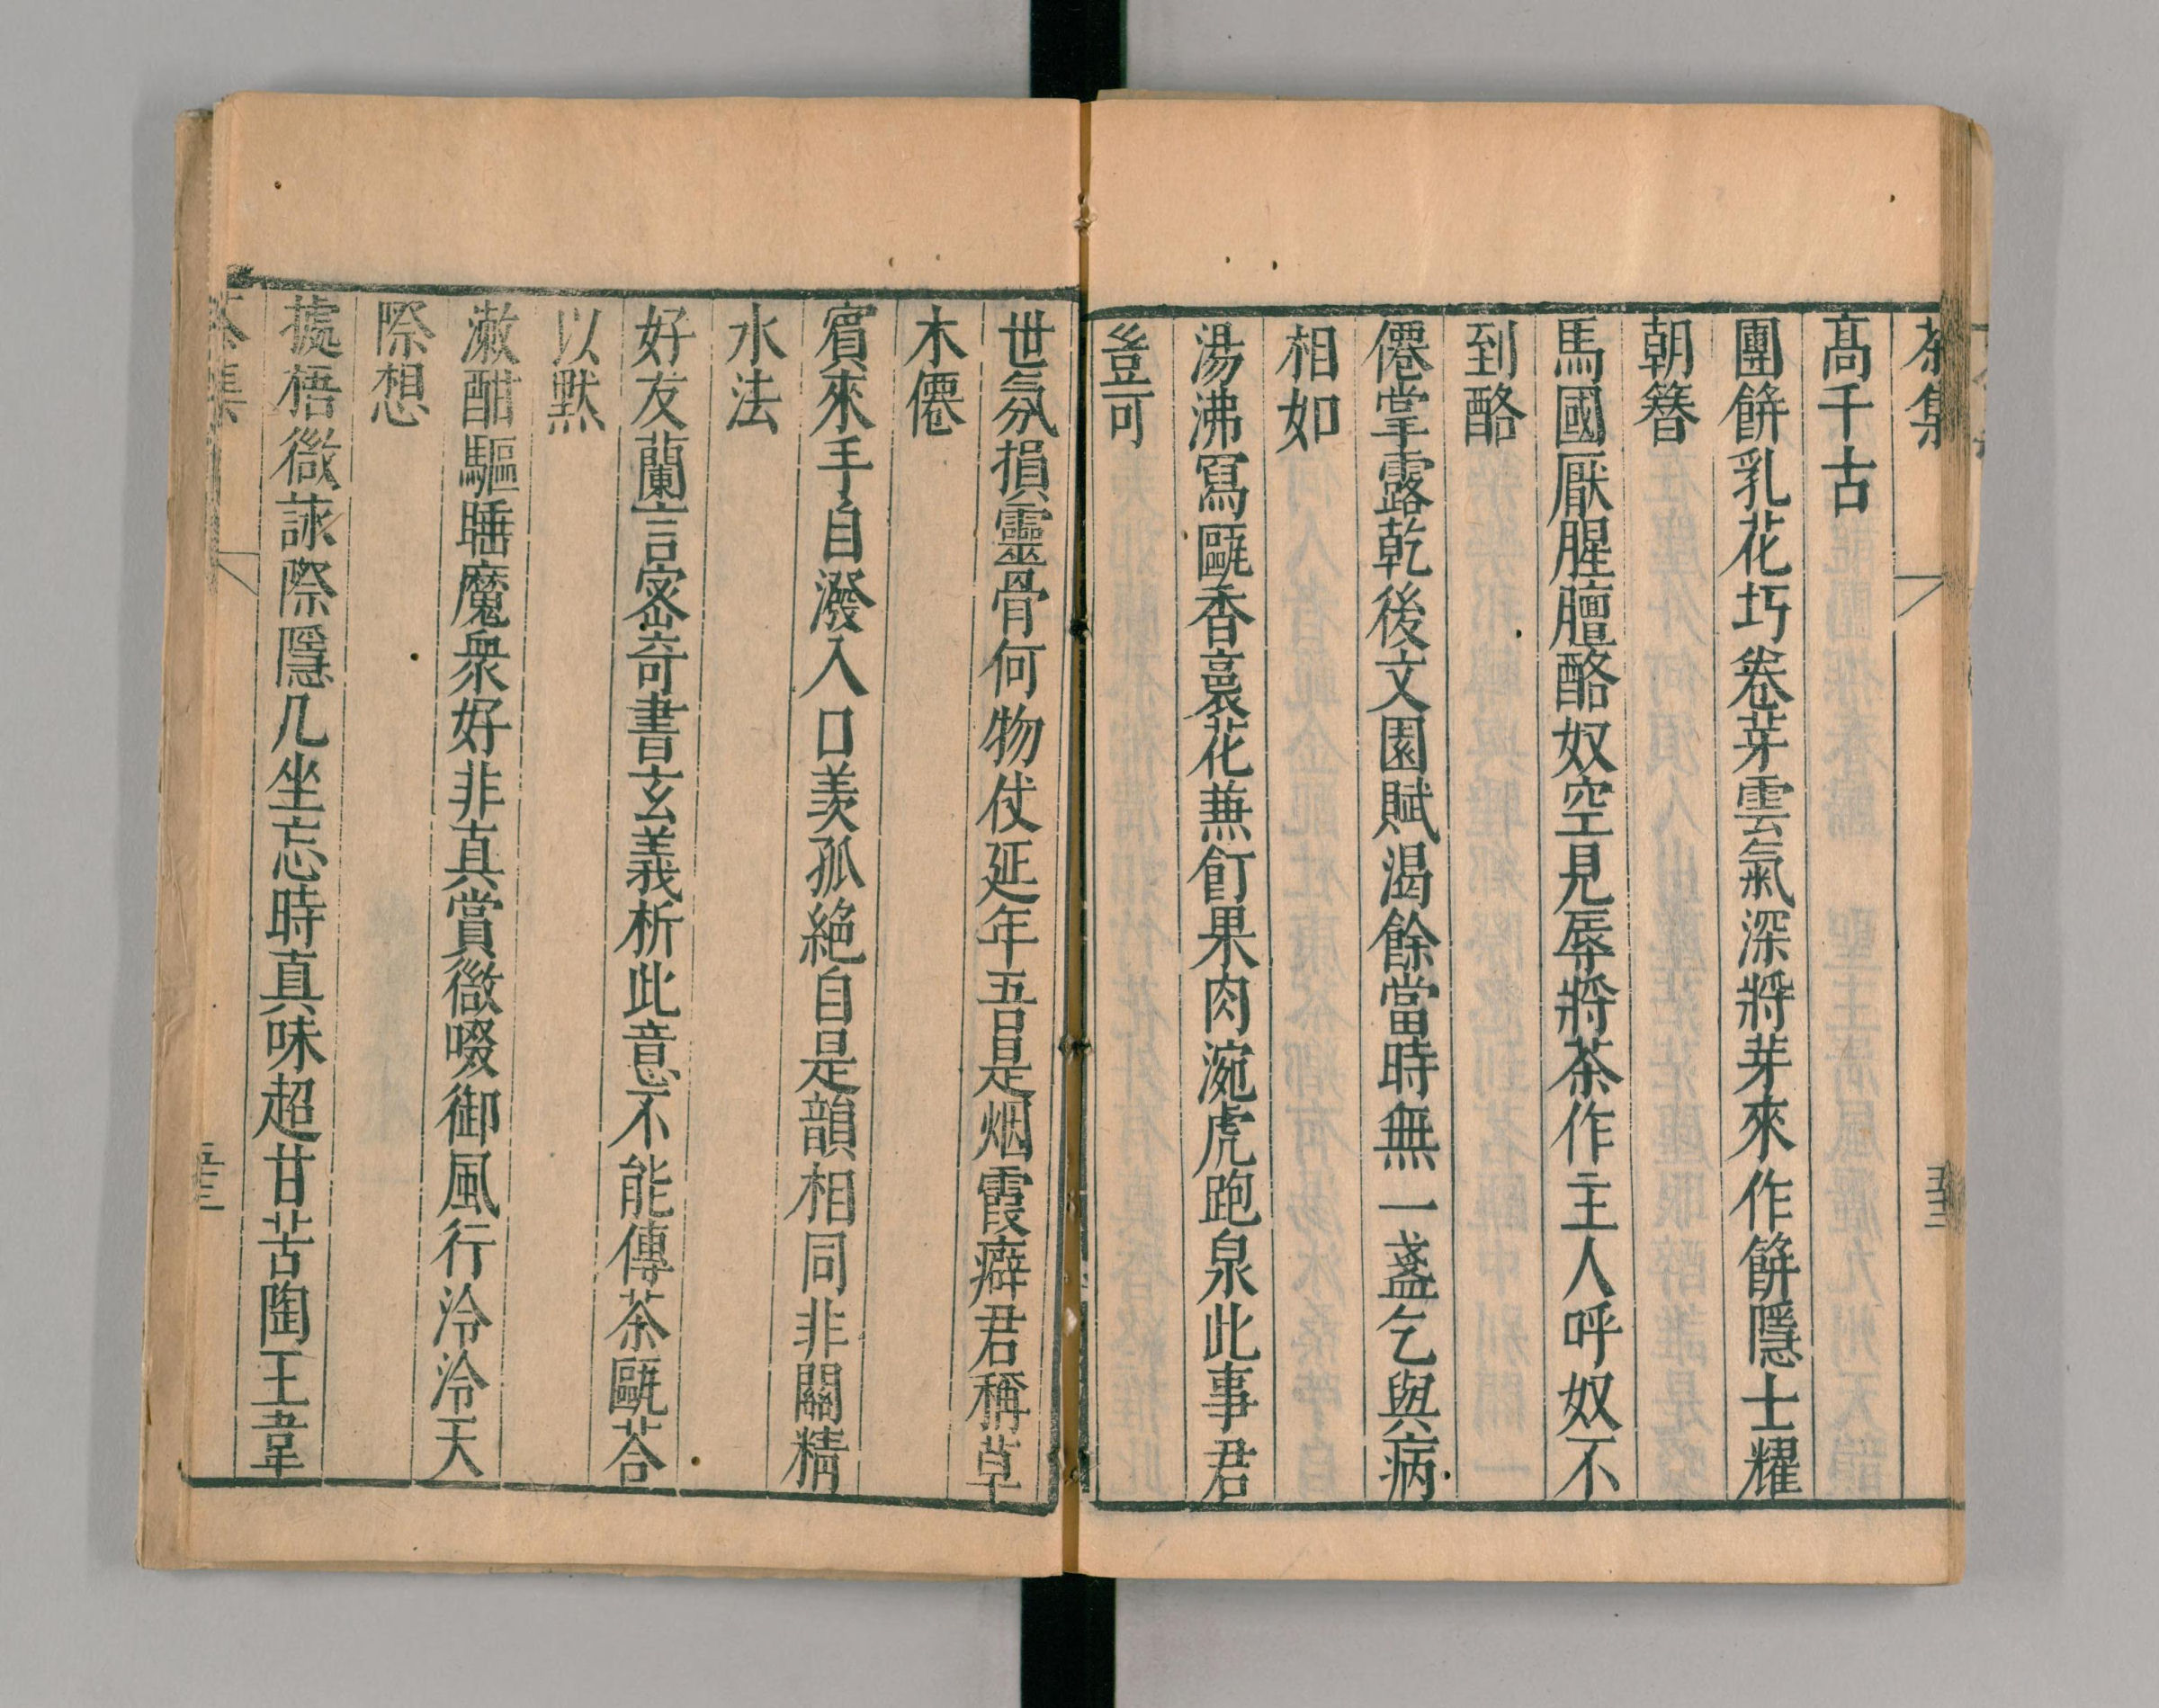 茶集
高千古
團餅乳花巧卷芽雲氣深將芽來作餅隱士耀
朝簪
馬國厭腥膻酪奴空見辱將茶作主人呼奴不
到酪
僊掌露乾後文園賦渴餘當時無一盞乞與病
相如
湯沸寫甌香裛花蕪飣果肉涴虎跑泉此事君
豈可
世氛損靈骨何物仗延年吾是烟霞癖君稱草
木僊
賓來手自潑入口羨孤絕自是韻相同非關精
水法
好友蘭言密奇書玄義析此意不能傳茶甌荅
以默
潄酣驅睡魔衆好非真賞微啜御風行泠泠天
際想
據梧微詠際隱几坐忘時真味超甘苦陶王韋
茶集